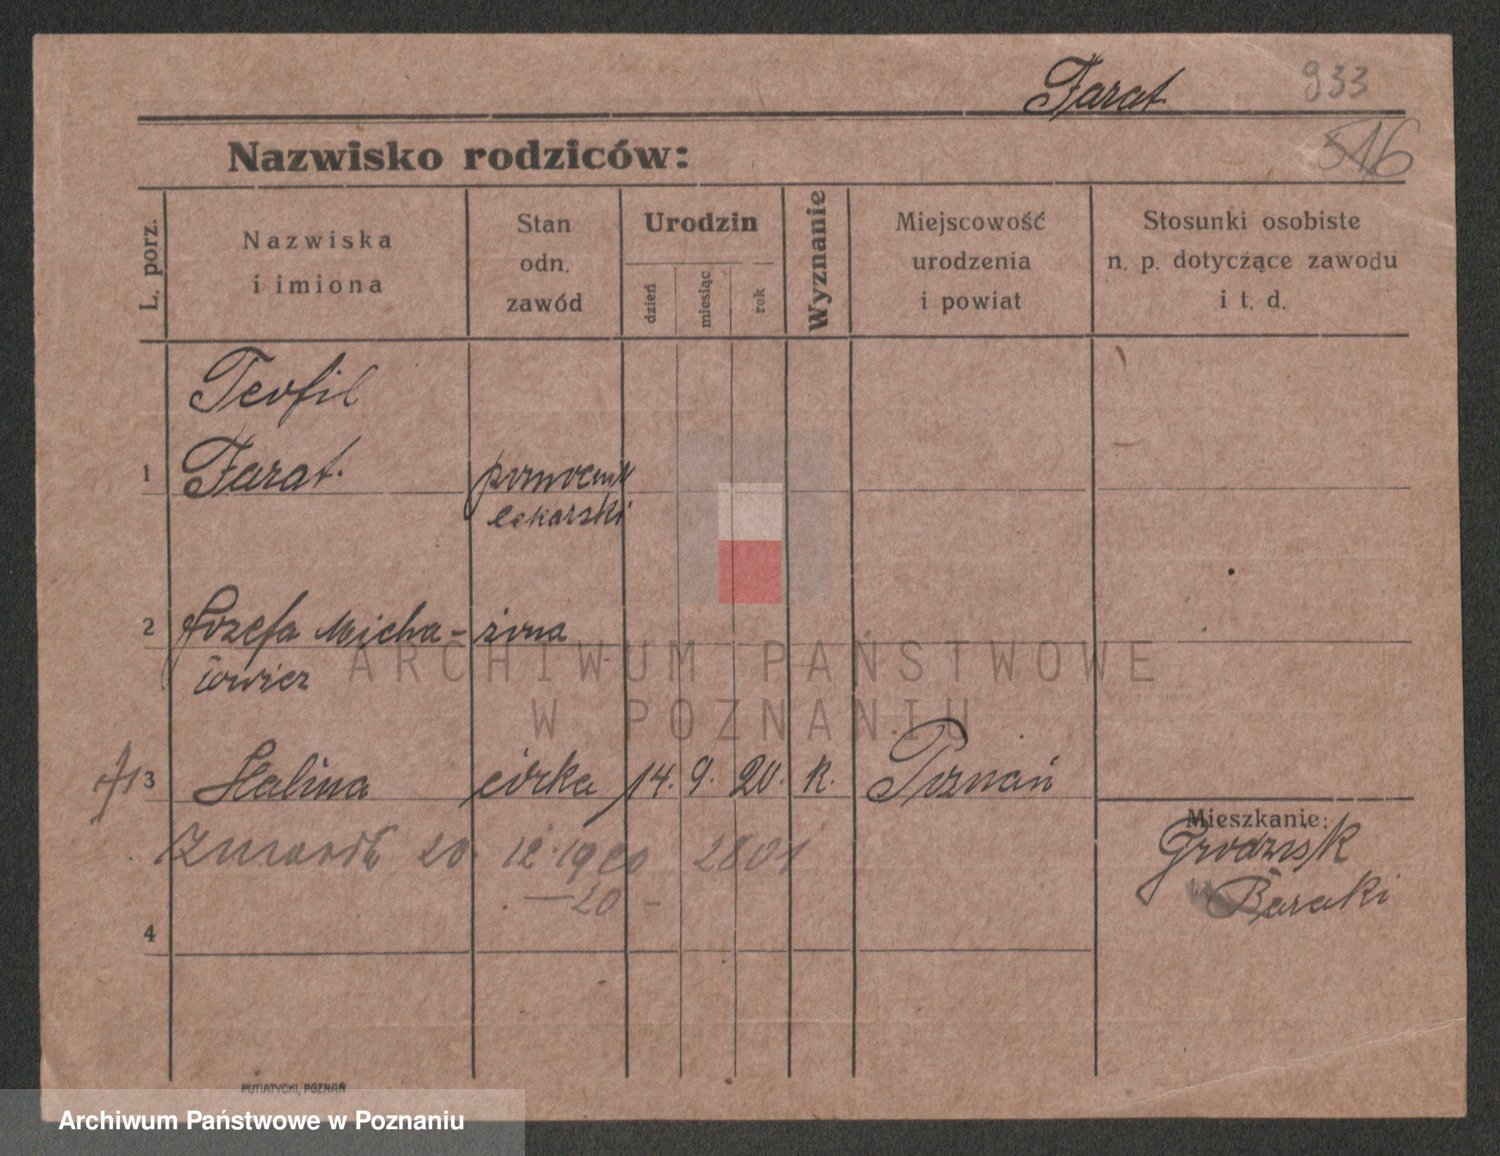 Farat 933
516
Nazwisko rodziców:
L. porz.
Nazwiska
i imiona
Stan
odn.
zawód
Urodzin
dzień
miesiąc
rok
Wyznanie
Miejscowość
urodzenia
i powiat
Stosunki osobiste
n. p. dotyczące zawodu
i t. d.
Teofil
1 Farat. pomocnik
lekarski
2 Józefa Micha- żona
łowicz
3 Halina córka 14. 9. 20. k. Poznań
Mieszkanie:
Grodzisk
Baraki
Zmarła 20. 12. 1920 2801
— 20 —
4
PUTIATYCKI, POZNAŃ
ARCHIWUM PAŃSTWOWE
W POZNANIU
Archiwum Państwowe w Poznaniu